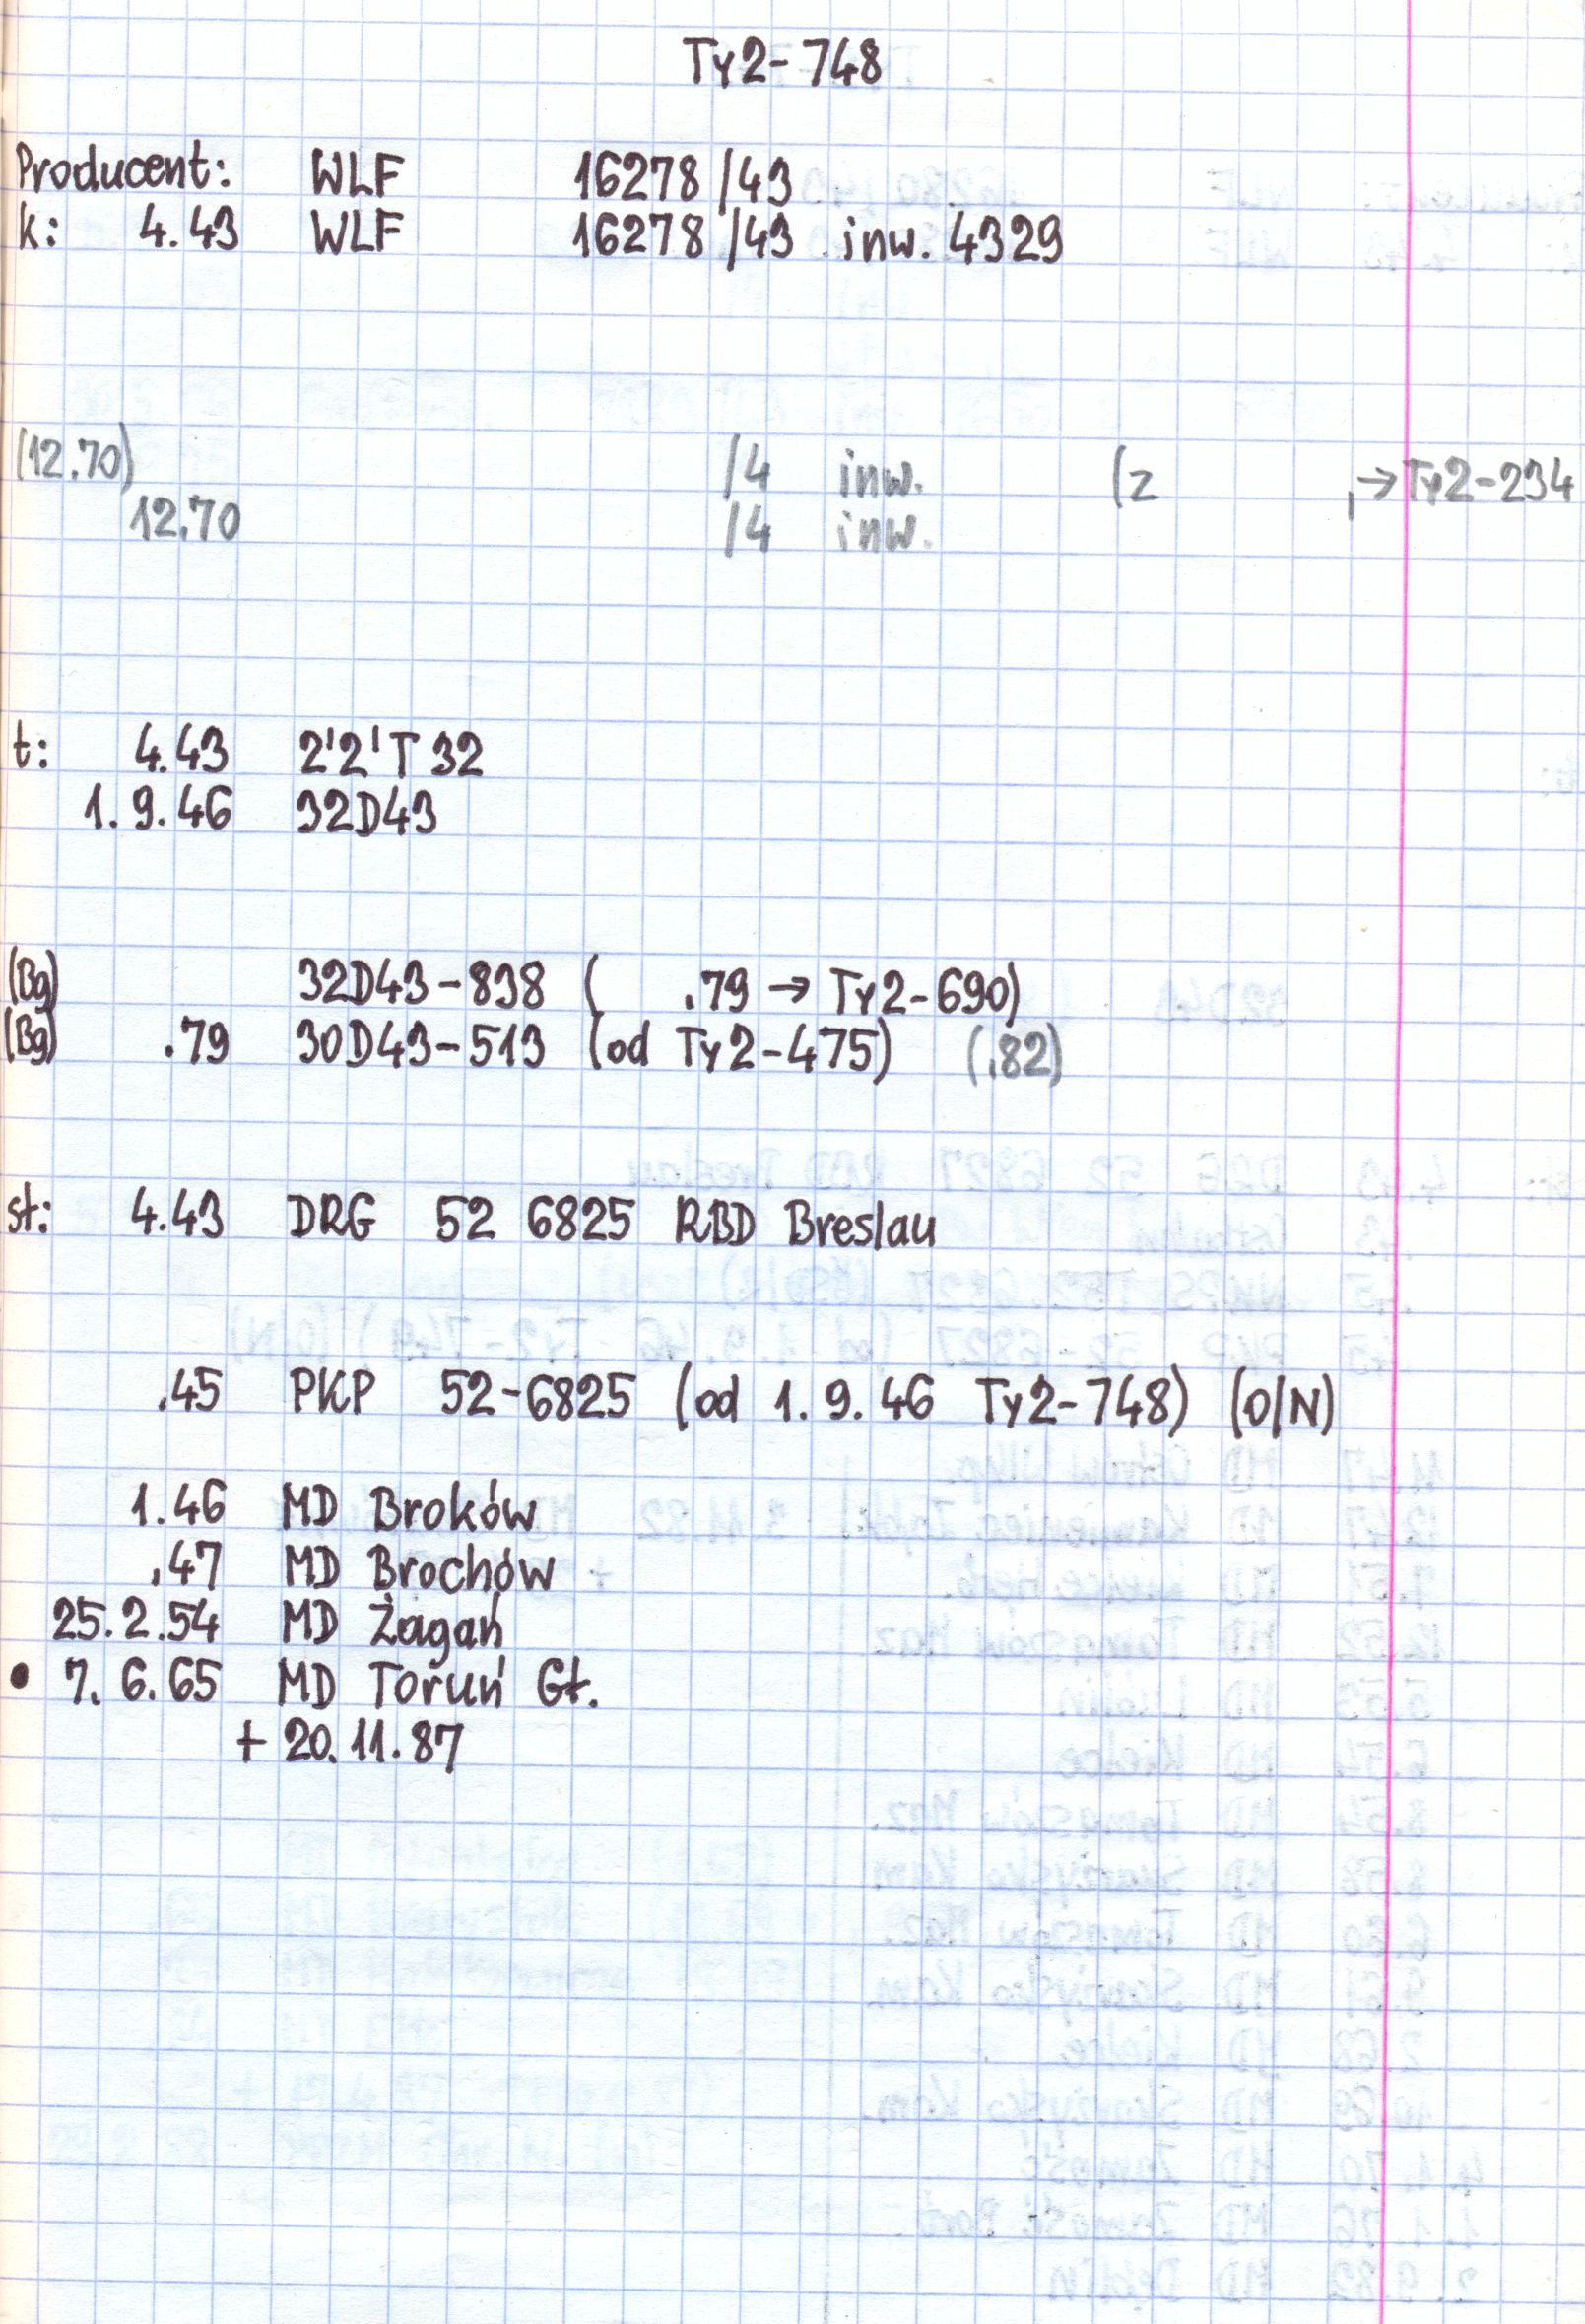 Ty2-748
Producent: WLF 16278/43
k: 4.43 WLF 16278/43 inw. 4329
(12.70) /4 inw. (z , → Ty2-234
12.70 /4 inw.
t: 4.43 2'2'T 32
1.9.46 32D43
(Bg) 32D43-838 ( .79 → Ty2-690)
(Bg) .79 30D43-513 (od Ty2-475) (.82)
st: 4.43 DRG 52 6825 RBD Breslau
.45 PKP 52-6825 (od 1.9.46 Ty2-748) (O/N)
1.46 MD Broków
.47 MD Brochów
25.2.54 MD Żagań
• 7.6.65 MD Toruń Gł.
+ 20.11.87